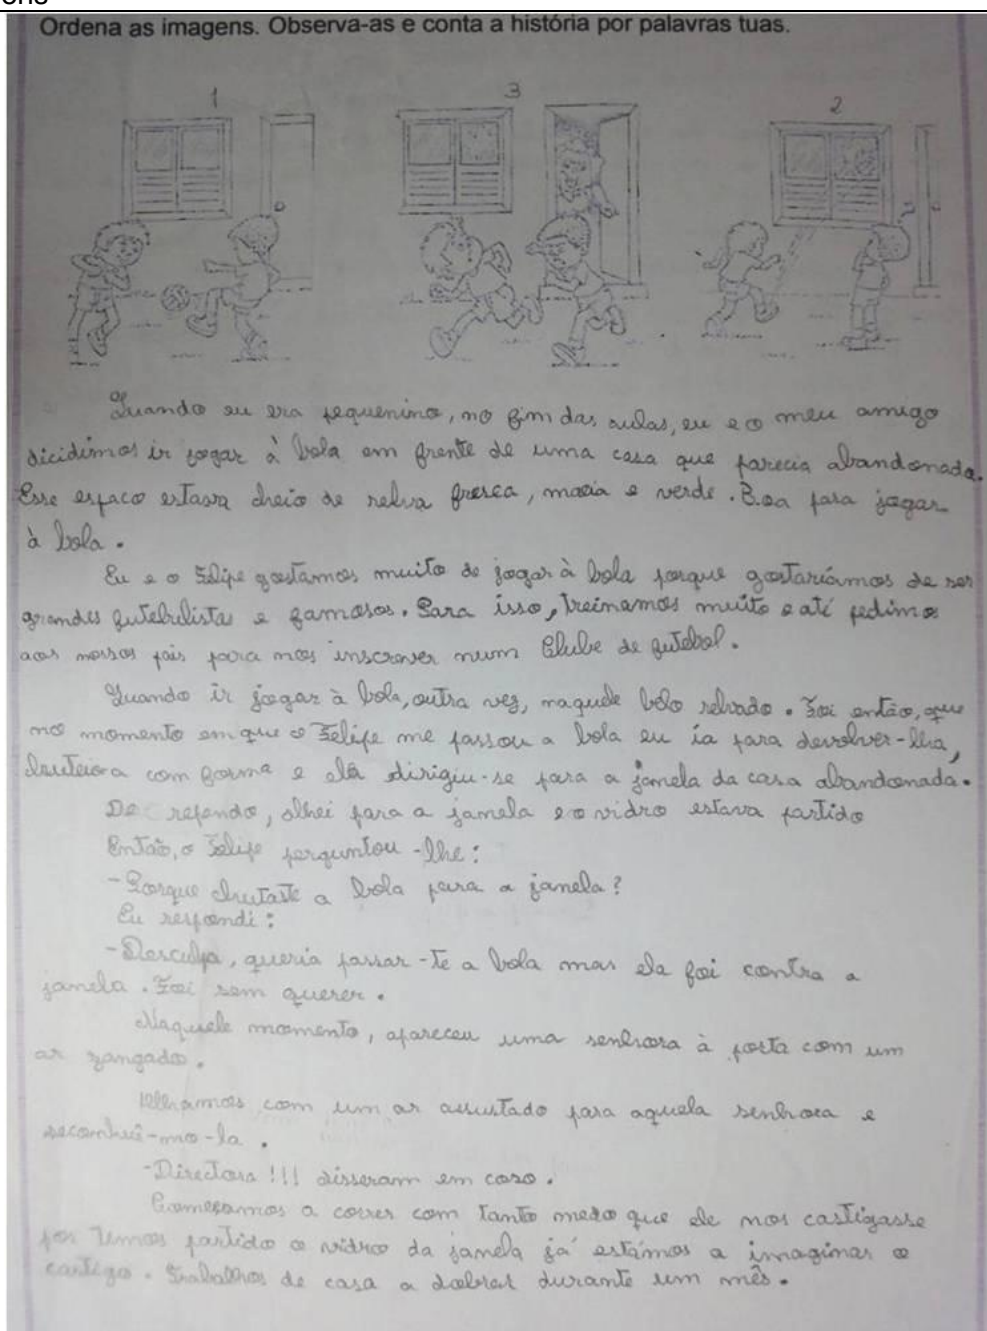 ens
Ordena as imagens. Observa-as e conta a história por palavras tuas.
1 3 2
Quando eu era pequenino, no fim das aulas, eu e o meu amigo
dicidimos ir jogar à bola em frente de uma casa que parecia abandonada.
Esse espaco estava cheio de relva fresca, macia e verde. Boa para jogar
à bola.
Eu e o Felipe gostamos muito de jogar à bola porque gostaríamos de ser
grandes futebolistas e famosos. Para isso, treinamos muito e até pedimos
aos nossos pais para nos inscrever num Clube de futebol.
Quando ir jogar à bola, outra vez, naquele belo relvado. Foi então, que
no momento em que o Felipe me passou a bola eu ía para devolver-lha,
com e ela dirigiu-se para a janela da casa abandonada.
De repende, olhei para a janela e o vidro estava partido
Então, o Felipe perguntou-lhe:
-Porque chutaste a bola para a janela?
Eu respondi:
-Desculpa, queria passar-te a bola mas ela foi contra a
janela. Foi sem querer.
Naquele momento, apareceu uma senhora à porta com um
ar zangado.
com um ar assustado para aquela senhora e
-mo-la.
-Directora!!! disseram em coro.
Começamos a correr com tanto medo que ele nos castigasse
por temos partido o vidro da janela já estámos a imaginar o
castigo. Trabalhos de casa a durante um mês.